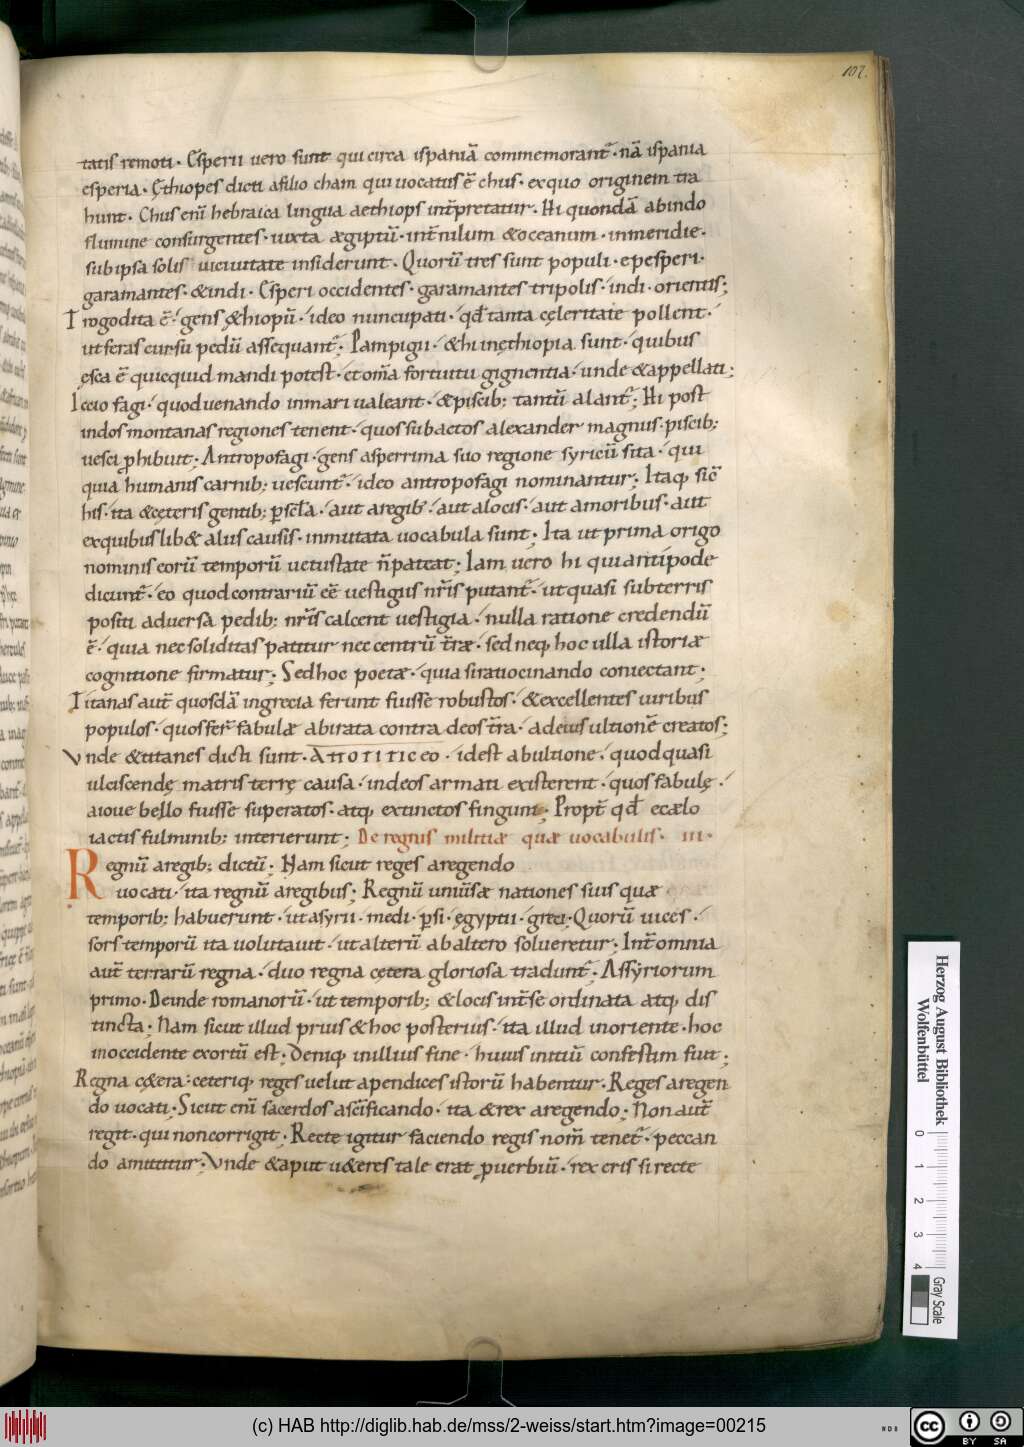 107.
tatis remoti · Csperii uero sunt qui circa ispaniā commemorant᷑ · nā ispania
esperia · Ęthiopes dicti afilio cham qui uocatus ē chus · exquo originem tra
hunt · Chus enī hebraica lingua aethiops int̄pretatur · Hi quondā abindo
flumine consurgentes · iuxta ægiptū · int̄ nilum &oceanum · inmeridie ·
sub ipsa solis uicinitate insiderunt · Quorū tres sunt populi · epesperi ·
garamantes · &indi · Esperi occidentes · garamantes tripolis · indi · orientis;
Trogodita ē · gens &hiopū · ideo nuncupati · qđ tanta cęleritate pollent ·
ut feras cursu pedū assequant᷑; Pampigii · &hi inęthiopia sunt · quibus
ęsca ē quicquid mandi potest · et om̄a fortuitu gignentia · unde &appellati;
Iccio fagi · quod uenando inmari ualeant · &piscib; tantū alant᷑; Hi post
indos montanas regiones tenent · quos subactos alexander magnus · piscib;
uesci ꝓhibuit; Antropofagi · gens asperrima suo regione syricū sita · qui
quia humanis carnib; uescunt᷑ · ideo antropofagi nominantur; Itaq; sic̄
his · ita &cęteris gentib; ꝑ scl̄a · aut aregib᷒ · aut alocis · aut amoribus · aut
exquibuslib& aliis causis · inmutata uocabula sunt; Ita ut prima origo
nominis eorū temporū uetustate n̄ pateat; Iam uero hi qui antipode
dicunt᷑ · eo quod contrariū eē uestigiis nr̄is putant᷑ · ut quasi sub terris
positi aduersa pedib; nr̄is calcent uestigia · nulla ratione credendū
ē · quia nec soliditas patitur nec centrū t̄ræ · sed neq; hoc ulla istoriæ
cognitione firmatur; Sed hoc poetæ · quasi ratiocinando coniectant;
Titanas aut̄ quosdā ingrecia ferunt fuisse robustos · &excellentes uiribus
populos · quos fer᷑ fabulæ abirata contra deos t̄ra · ad eius ultionē creatos;
Vnde &titanes dicti sunt · ΑΠΟΤΙΤΙCEO · idest abultione · quod quasi
ulciscendę matris terrę causa · indeos armati existerent · quos fabulę ·
aioue bello fuisse superatos · atq; extinctos fingunt · Propt̄ qđ ecælo
iactis fulminib; interierunt; De regnis militiæ quæ uocabulis · III ·
Regnū aregib; dictū; Nam sicut reges aregendo
uocati · ita regnū aregibus; Regnū uniuīsæ nationes suis quæ
temporib; habuerunt · ut asyrii · medi · ꝑsi · ęgyptii · greci; Quorū uices ·
sors temporū ita uolutauit · ut alterū abaltero solueretur; Int̄ omnia
aut̄ terrarū regna · duo regna cętera gloriosa tradunt᷑; Assyriorum
primo · Deinde romanorū · ut temporib; &locis int̄ se ordinata atq; dis
tincta; Nam sicut illud prius &hoc posterius · ita illud inoriente · hoc
inoccidente exortū est; Deniq; inillius fine · huius initiū confestim fuit;
Regna c&era: ceteriq; reges uelut apendices istorū habentur · Reges aregen
do uocati · Sicut enī sacerdos ascīficando · ita &rex aregendo; Non aut̄
regit · qui noncorrigit; Recte igitur faciendo regis nom̄ tenet᷑ · peccan
do amittitur; Vnde &aput u&eres tale erat ꝓuerbiū · rex eris si recte
Herzog August Bibliothek
Wolfenbüttel
0 1 2 3 4
Gray Scale
(c) HAB http://diglib.hab.de/mss/2-weiss/start.htm?image=00215
cc BY SA